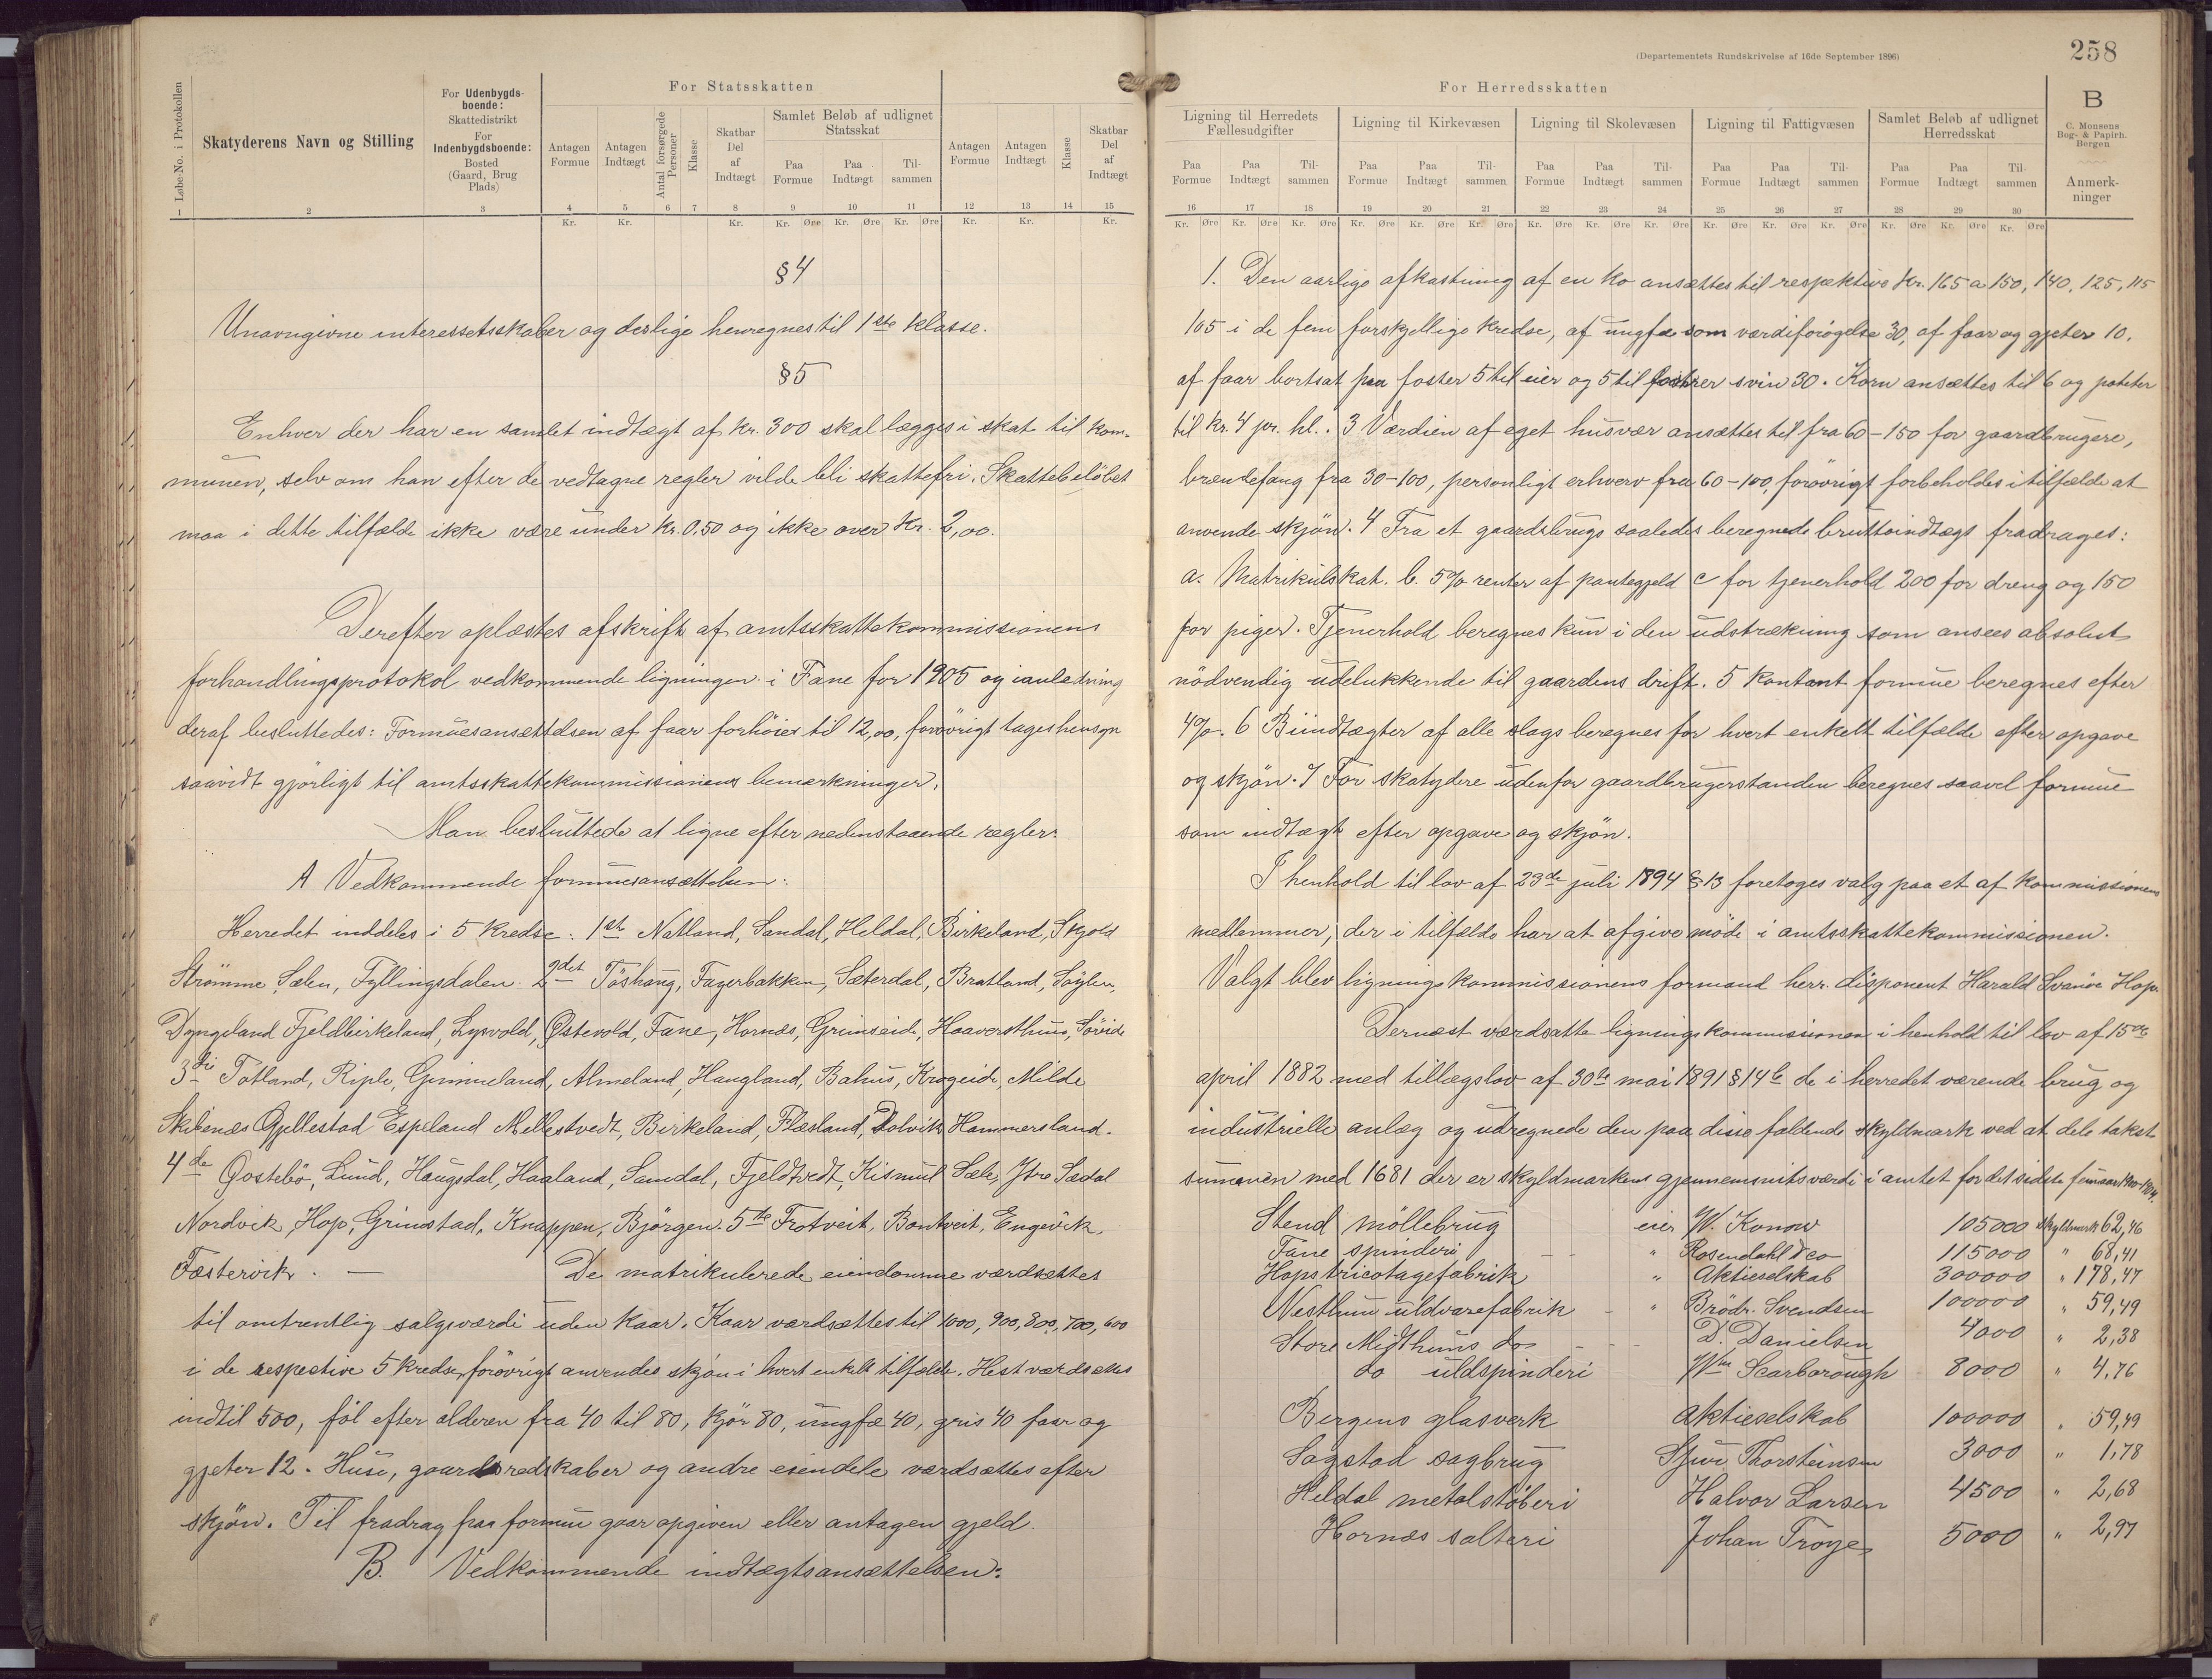 258
(Departementets Rundskrivelse af 16de September 1896)
Løbe-No. i Protokollen
Skatyderens Navn og Stilling
For Udenbygds-
boende:
Skattedistrikt
For
Indenbygdsboende:
Bosted
(Gaard, Brug
Plads)
For Statsskatten
Antagen Formue
Antagen Indtægt
Antal forsørgede Personer
Klasse
Skatbar Del af Indtægt
Samlet Beløb af udlignet Statsskat
Paa Formue
Paa Indtægt
Tilsammen
Antagen Formue
Antagen Indtægt
Klasse
Skatbar Del af Indtægt
1 2 3 4 5 6 7 8 9 10 11 12 13 14 15
Kr. Kr. Kr. Kr. Øre Kr. Øre Kr. Øre Kr. Kr. Kr.
§4
Unavngivne interessetsskaber og deslige henregnes til 1ste klasse.
§5
Enhver der har en samlet indtægt af kr. 300 skal lægges i skat til kom-
munen, selv om han efter de vedtagne regler vilde bli skattefri. Skattebeløbet
maa i dette tilfælde ikke være under kr. 0.50 og ikke over kr. 2,00.
Derefter oplæstes afskrift af amtsskattekommissionens
forhandlingsprotokol vedkommende ligningen i Fane for 1905 og ianledning
deraf besluttedes: Formuesansættelsen af faar forhöies til 12,00, forövrigt tages hensyn
saavidt gjörligt til amtsskattekommissionens bemerkninger.
Man besluttede at ligne efter nedenstaaende regler:
A Vedkommende formuesansættelsen:
Herredet inddeles i 5 kredse: 1ste Natland, Sandal, Heldal, Birkeland, Skjold
Strömme Sælen, Fyllingsdalen. 2det Töshaug, Fagerbakken, Sæterdal, Bratland, Söylen,
Dyngeland Fjeldbirkeland, Lysvold, Østevold, Fane, Hornæs, Grimseid, Haaversthus, Sövide
3die Totland, Riple, Gimmeland, Almeland, Haugland, Bahus, Krogeide, Milde
Skibenæs Gjellestad Espeland Mellestvedt, Birkeland, Flæsland, Dolvik Hammersland.
4de Gostebö, Lund, Haugsdal, Haaland, Samdal, Fjeldtvedt, Kismul Sæle, Ytre Sædal
Nordvik, Hop, Grimstad, Knappen, Bjørgen. 5te Frotveit, Bontveit, Engevik,
Fæstervik. — De matrikulerede eiendomme værdsættes
til omtrentlig salgsværdi uden kaar. Kaar værdsættes til 1000, 900, 800, 700, 600
i de respective 5 kredse, forövrigt anvendes skjön i hvert enkelt tilfælde. Hest værdsættes
indtil 500, föl efter alderen fra 40 til 80, kjör 80, ungfæ 40, gris 40 faar og
gjeter 12. Huse, gaardsredskaber og andre eiendele værdsættes efter
skjön. Til fradrag paa formue gaar opgiven eller antagen gjeld.
B. Vedkommende indtægtsansættelsen:
For Herredsskatten
B
C. Monsens
Bog- & Papirh.
Bergen
Anmerk-
ninger
Ligning til Herredets Fællesudgifter
Ligning til Kirkevæsen
Ligning til Skolevæsen
Ligning til Fattigvæsen
Samlet Beløb af udlignet Herredsskat
Paa Formue Paa Indtægt Tilsammen Paa Formue Paa Indtægt Tilsammen Paa Formue Paa Indtægt Tilsammen Paa Formue Paa Indtægt Tilsammen Paa Formue Paa Indtægt Tilsammen
16 17 18 19 20 21 22 23 24 25 26 27 28 29 30
Kr. Øre Kr. Øre Kr. Øre Kr. Øre Kr. Øre Kr. Øre Kr. Øre Kr. Øre Kr. Øre Kr. Øre Kr. Øre Kr. Øre Kr. Øre Kr. Øre Kr. Øre
1. Den aarlige afkastning af en ko ansættes til respektive kr. 165 a 150, 140, 125, 115
105 i de fem forskjellige kredse, af ungfæ som værdiforögelse 30, af faar og gjeter 10.
af faar bortsat paa foster 5 til eier og 5 til fostrer svin 30. Korn ansættes til 6 og poteter
til kr. 4 pr. hl. 3 Værdien af eget husvær ansættes til fra 60-150 for gaardbrugere,
brændefang fra 30-100, personligt erhverv fra 60-100, forövrigt forbeholdes i tilfælde at
anvende skjön. 4 Fra et gaardsbrugs saaledes beregnede bruttoindtægt fradrages:
a. Matrikulskat. b. 5% renter af pantegjeld c for tjenerhold 200 for dreng og 150
for piger. Tjenerhold beregnes kun i den udstrækning som ansees absolut
nödvendig udelukkende til gaardens drift. 5 Kontant formue beregnes efter
4%. 6 Biindtægter af alle slags beregnes for hvert enkelt tilfælde efter opgave
og skjön. 7 For skatydere udenfor gaardbrugerstanden beregnes saavel formue
som indtægt efter opgave og skjön.
I henhold til lov af 23de juli 1894 §13 foretoges valg paa et af kommissionens
medlemmer, der i tilfælde har at afgive möde i amtsskattekommissionen.
Valgt blev ligningskommissionens formand herr. disponent Harald Svanöe Hop.
Dernæst værdsatte ligningskommissionen i henhold til lov af 15de
april 1882 med tillægslov af 30te mai 1891 §14 b de i herredet værende brug og
industrielle anlæg og udregnede den paa disse faldende skyldmark ved at dele takst-
summen med 1681 der er skyldmarkens gjennemsnitsværdi i amtet for det sidste femaar 1900-1904.
Stend möllebrug eier W. Konow 105000 skyldmark 62,46
Fane spinderi - - " Rosendahl & co 115000 " 68,41
Hops tricotagefabrik " Aktieselskab 300000 " 178,47
Nesttun uldvarefabrik - " Brödr. Svendsen 100000 " 59,49
Store Midthuns do - - - D. Danielsen 4000 " 2,38
do uldspinderi Wm Scarborough 8000 " 4,76
Bergens glasverk Aktieselskab 100000 " 59,49
Sagstad sagbrug Sjur Thorsteinsen 3000 " 1,78
Heldal metalstöberi Halvor Larsen 4500 " 2,68
Hornæs salteri Johan Troye 5000 " 2,97